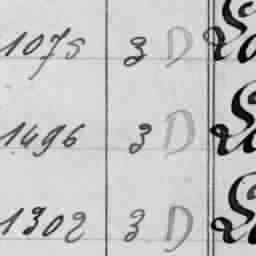 1075 3 D
1496 3 D
1302 3 D